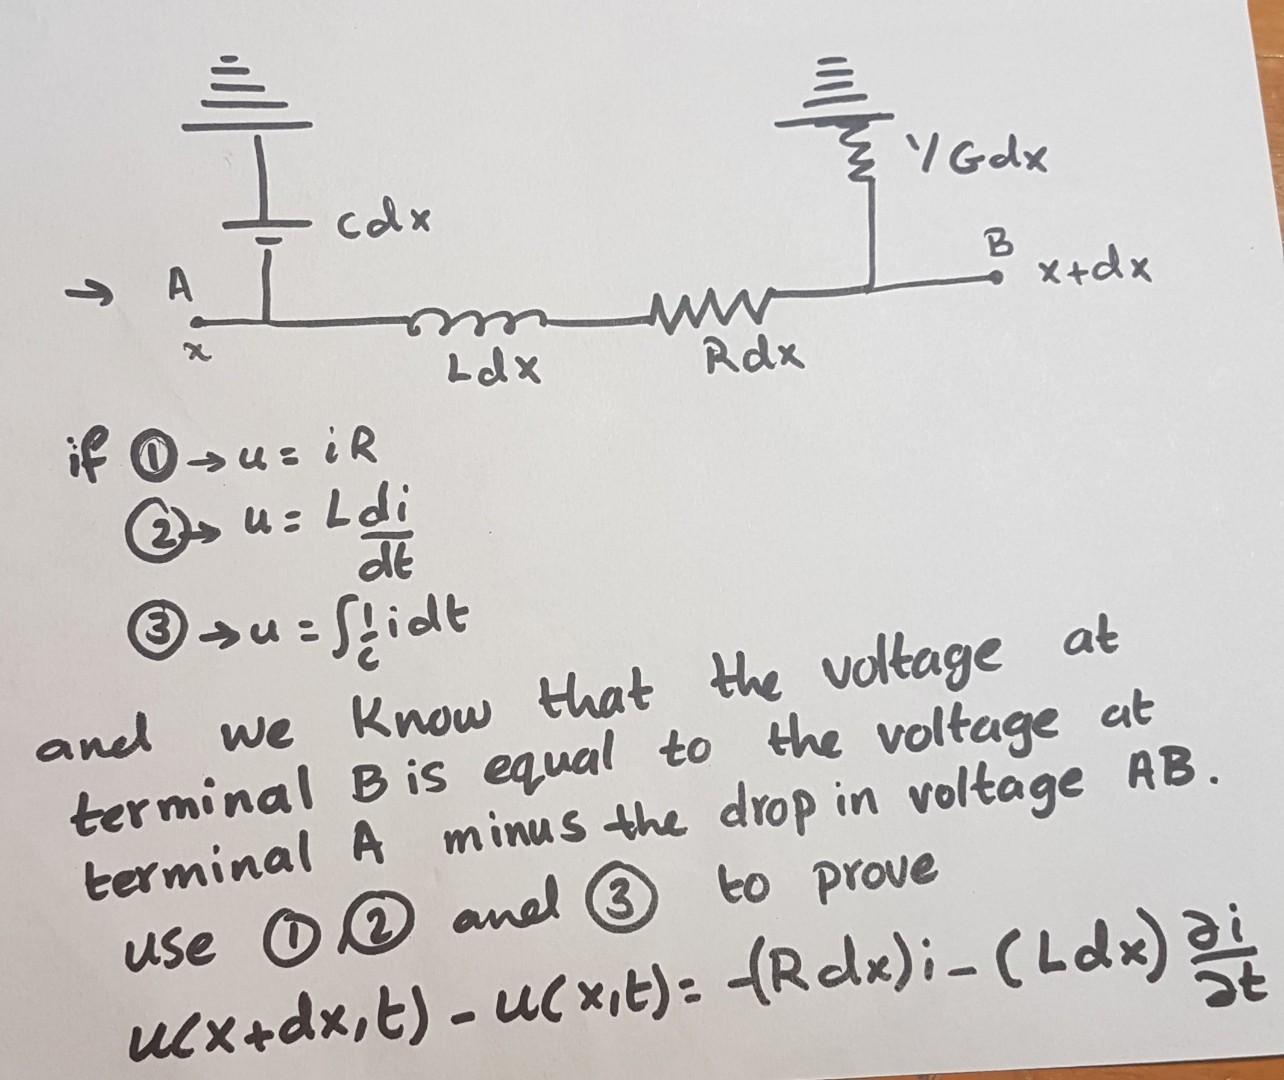 1/Gdx
Cdx
B
x+dx
→ A
x
Ldx
Rdx
if ① → u = iR
② → u = L di/dt
③ → u = ∫ 1/c i dt
and we Know that the voltage at
terminal B is equal to the voltage at
terminal A minus the drop in voltage AB.
use ① ② and ③ to prove
u(x+dx,t) - u(x,t) = -(Rdx)i - (Ldx) ∂i/∂t